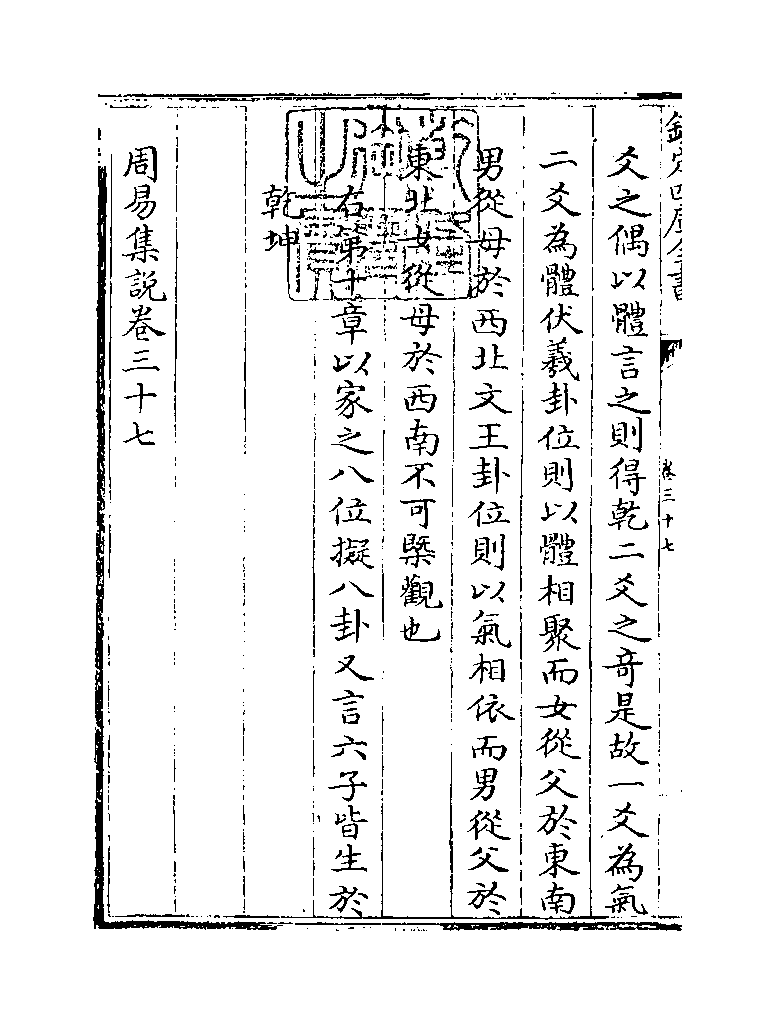 欽定四庫全書
卷三十七
爻之偶以體言之則得乾二爻之竒是故一爻為氣
二爻為體伏羲卦位則以體相聚而女從父於東南
男從母於西北文王卦位則以氣相依而男從父於
東北女從母於西南不可槩觀也
右第十章以家之八位擬八卦又言六子皆生於
乾坤
周易集説卷三十七